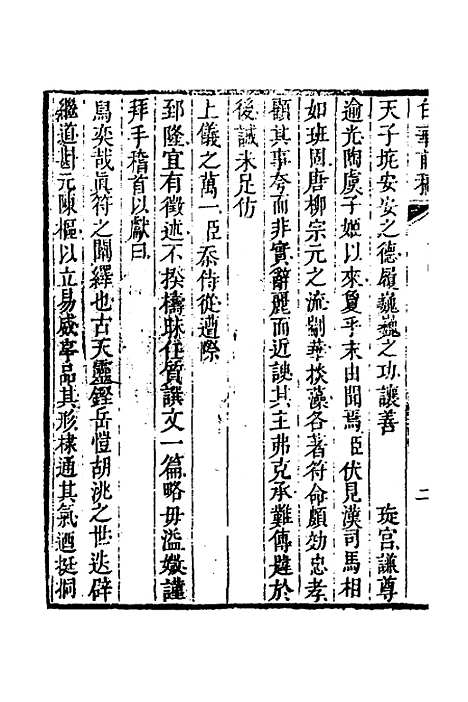 白華前稿
二
天子扡安安之德履巍巍之功讓善　　琁宮謙尊
逾光陶虞子姬以來夐乎末由聞焉臣伏見漢司馬相
如班固唐柳宗元之流劌華掞藻各著符命頗効忠孝
顧其事夸而非實辭麗而近諛其主弗克承難傳逮於
後誠未足仿
上儀之萬一臣忝侍從遭際
郅隆宜有徵述不揆檮昧任質譔文一篇略毋溢媺謹
拜手稽首以獻曰
烏奕哉眞符之闡繹也古天靈鏗岳愷胡洮之世迭辟
繼道斟元陳樞以立易威亭品其形棣通其氣迺挺挏